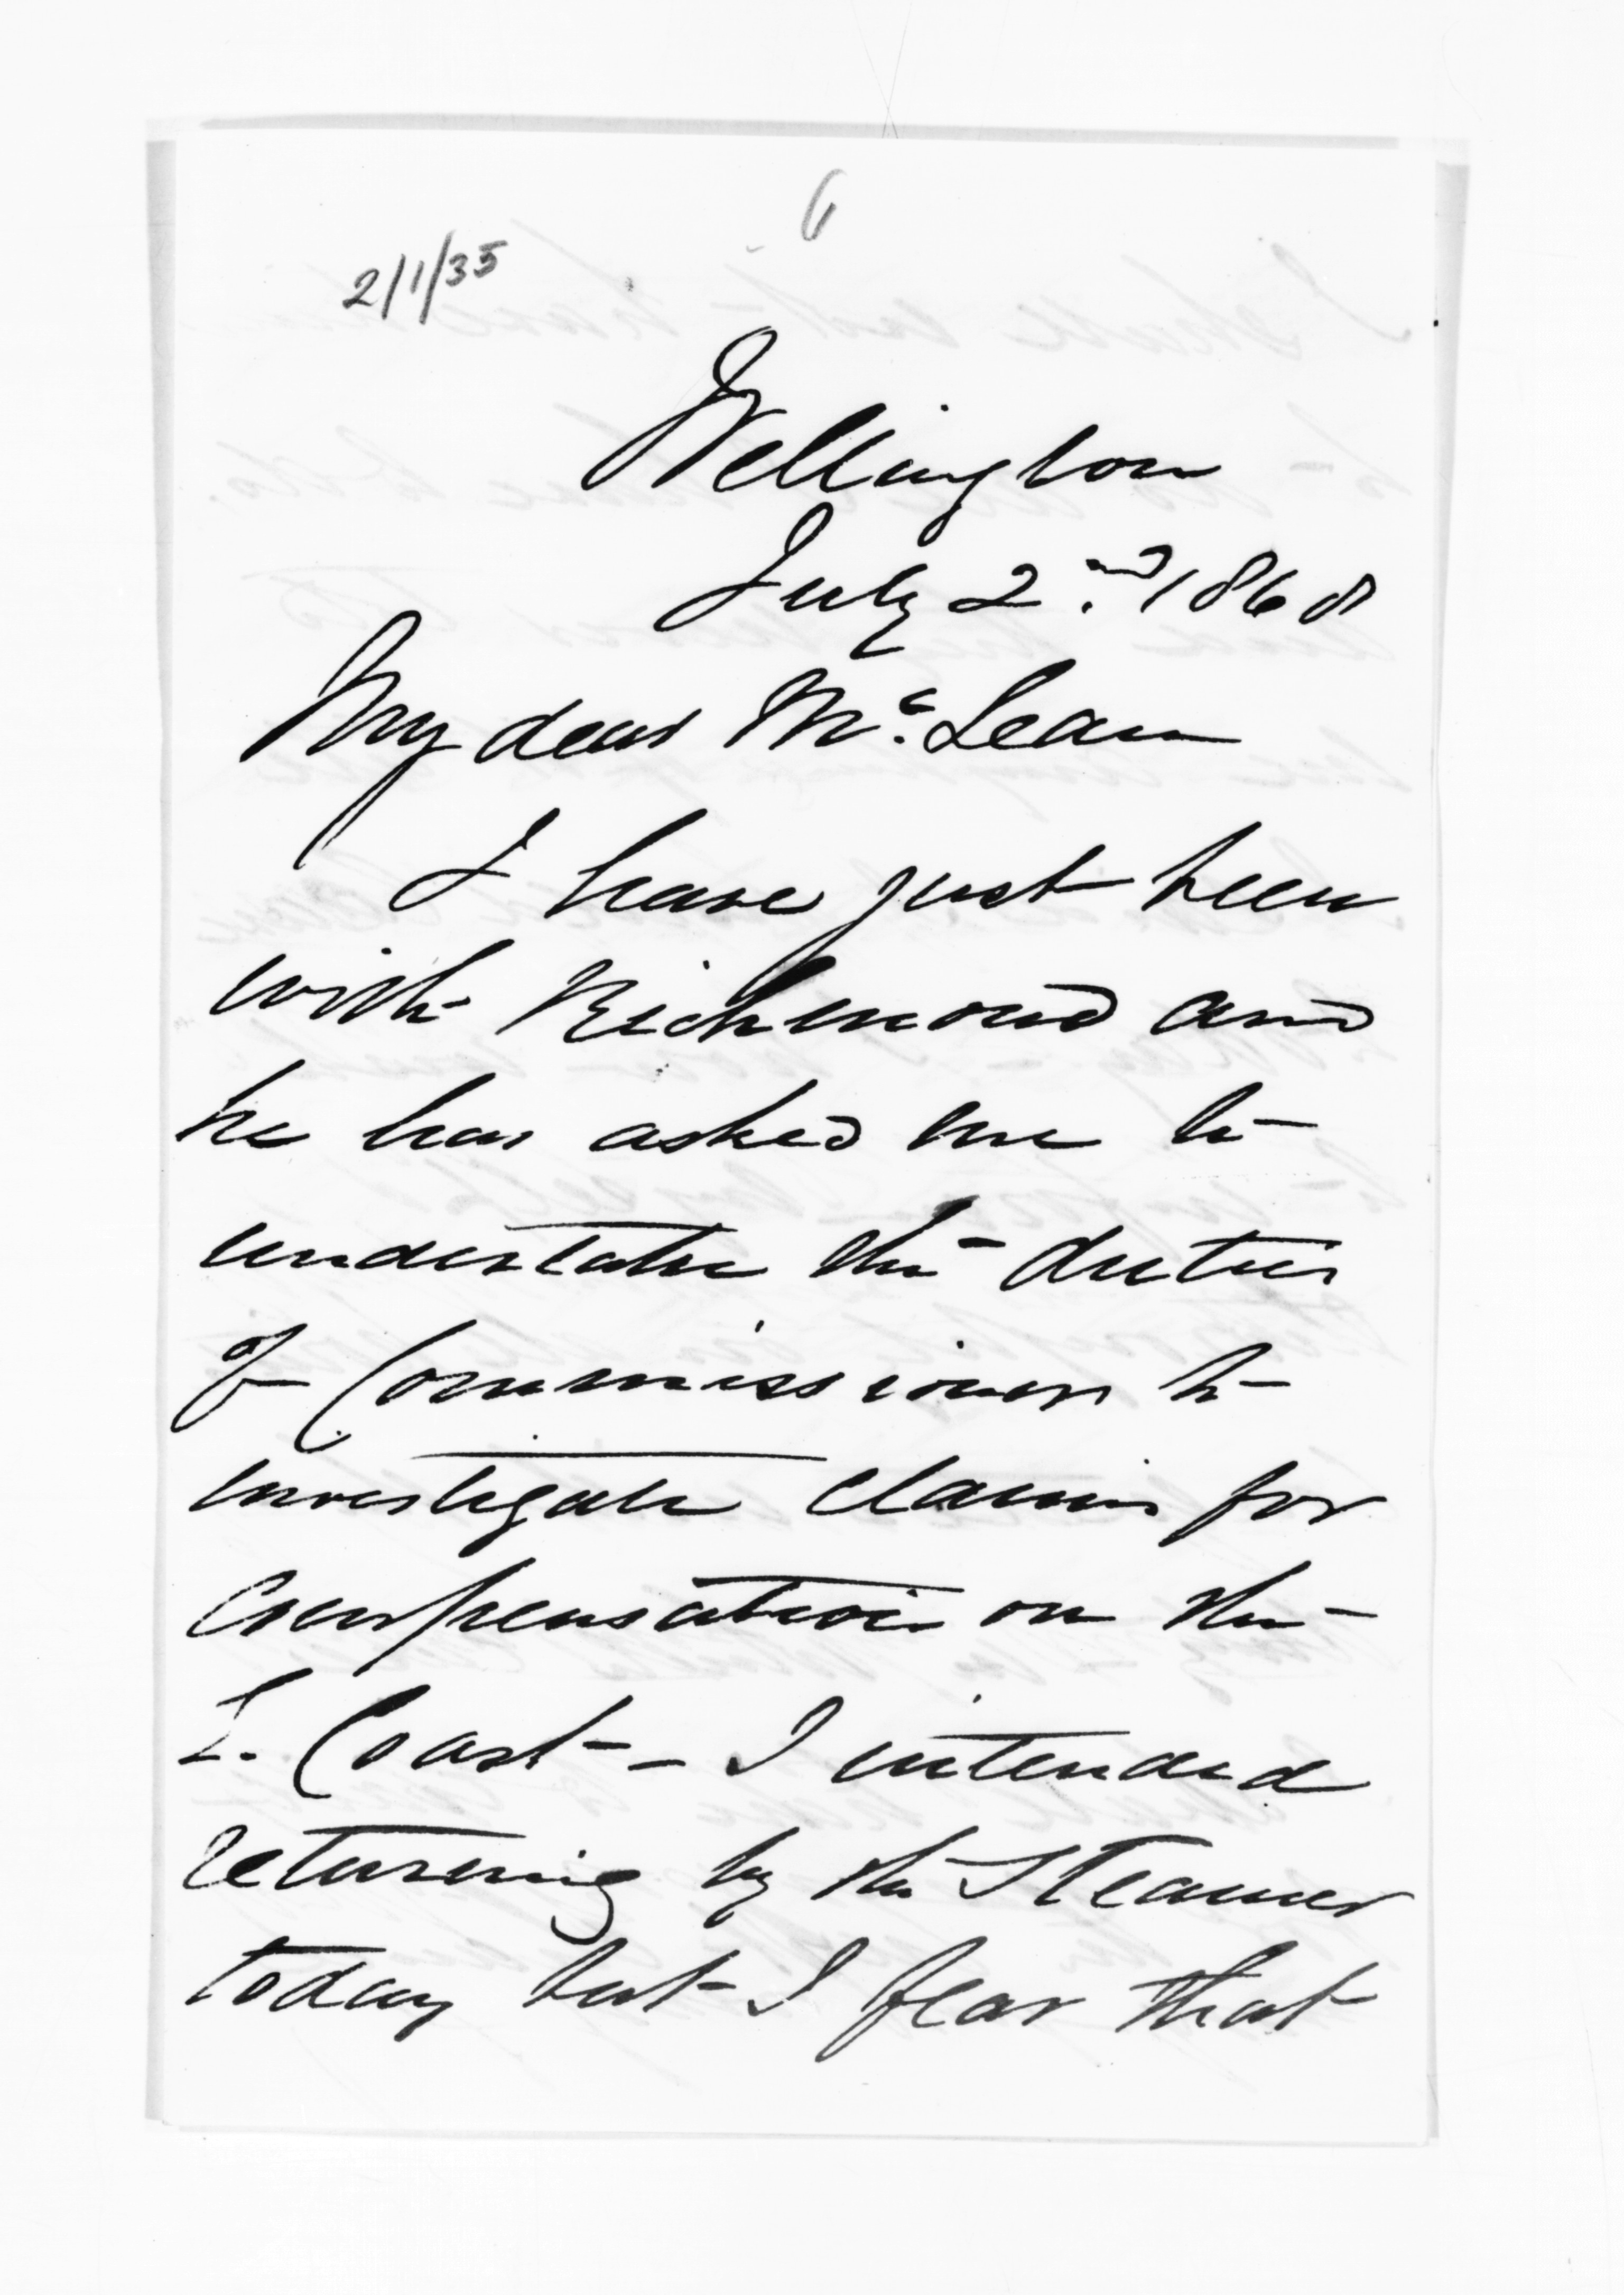 6
2/1/35
Wellington
July 2nd. 1868
My dear McLean
I have just been
with Richmond and
he has asked me to
undertake the duties
of Commissioner to
investigate claims for
Compensation on the
E. Coast - I intended
returning by the Steamer
today but I fear that